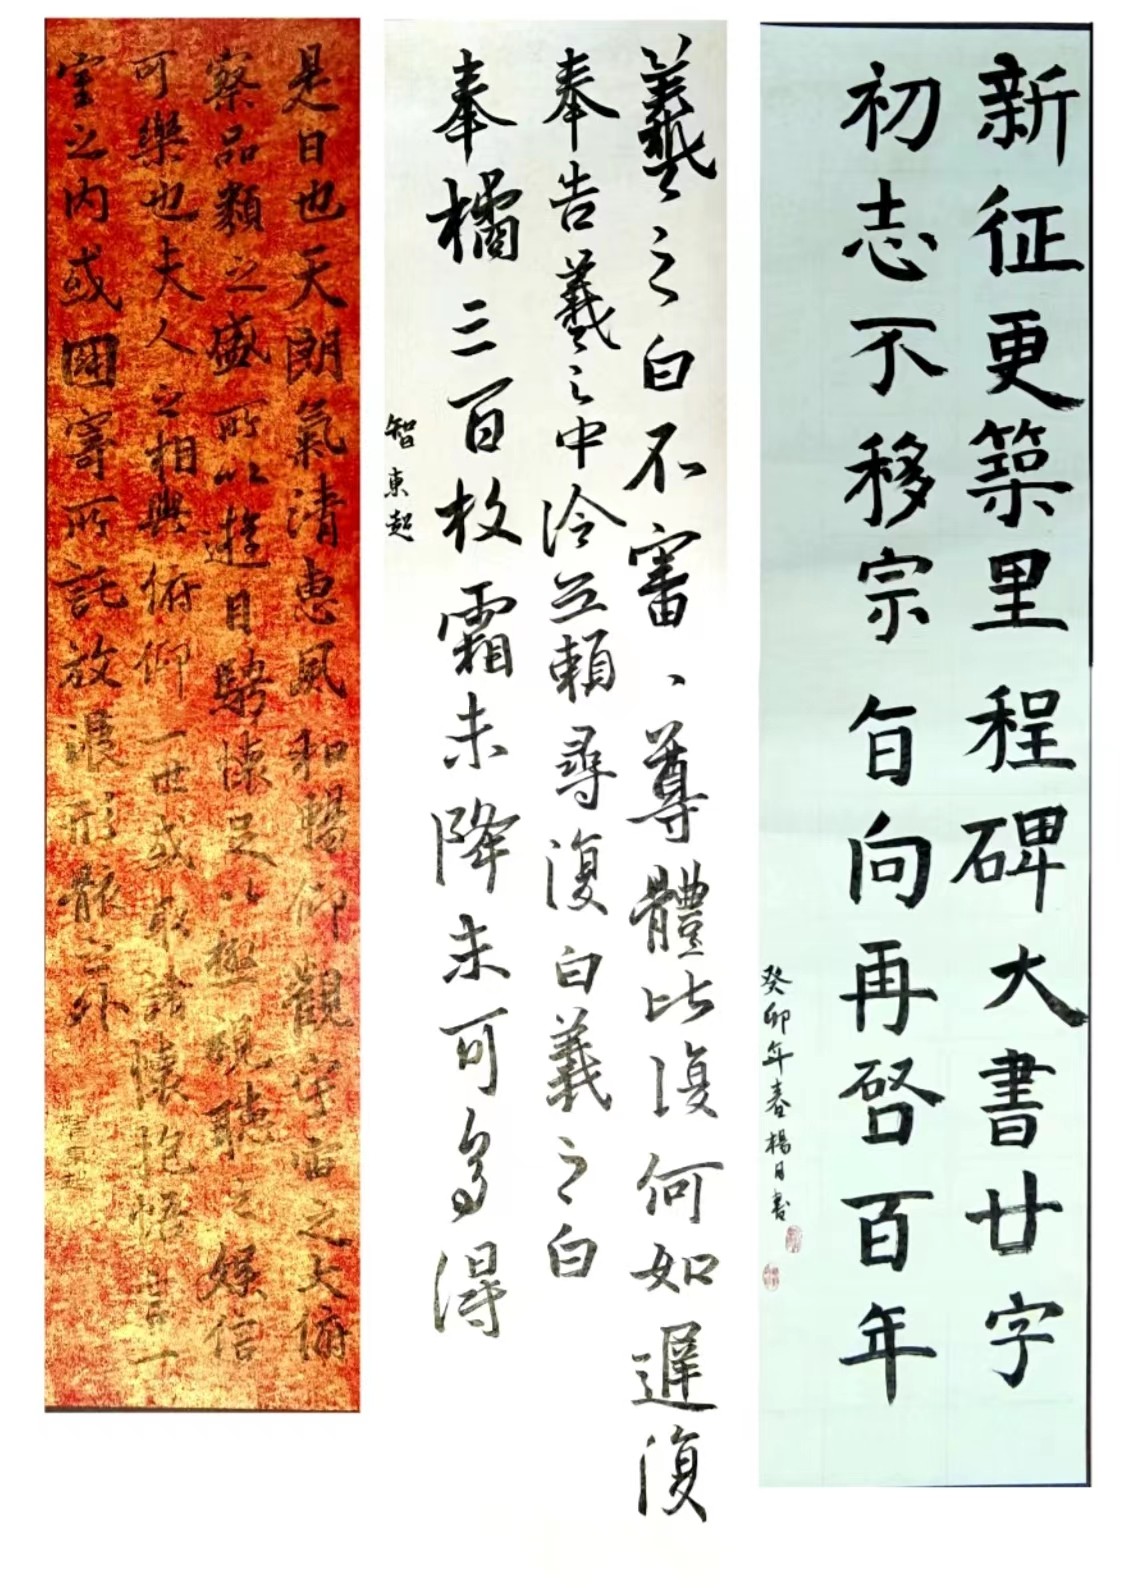 新征更築里程碑大書廿字
初志不移宗旨向再啓百年
癸卯年春楊日書
羲之白不審、尊體比復何如遲復
奉告羲之中冷无賴尋復白羲之白
奉橘三百枚霜未降未可多得
智東超
是日也天朗氣清惠風和暢仰觀宇宙之大俯
察品類之盛所以遊目騁懷足以極視聽之娛信
可樂也夫人之相與俯仰一世或取諸懷抱悟言一
室之内或因寄所託放浪形骸之外
智東超